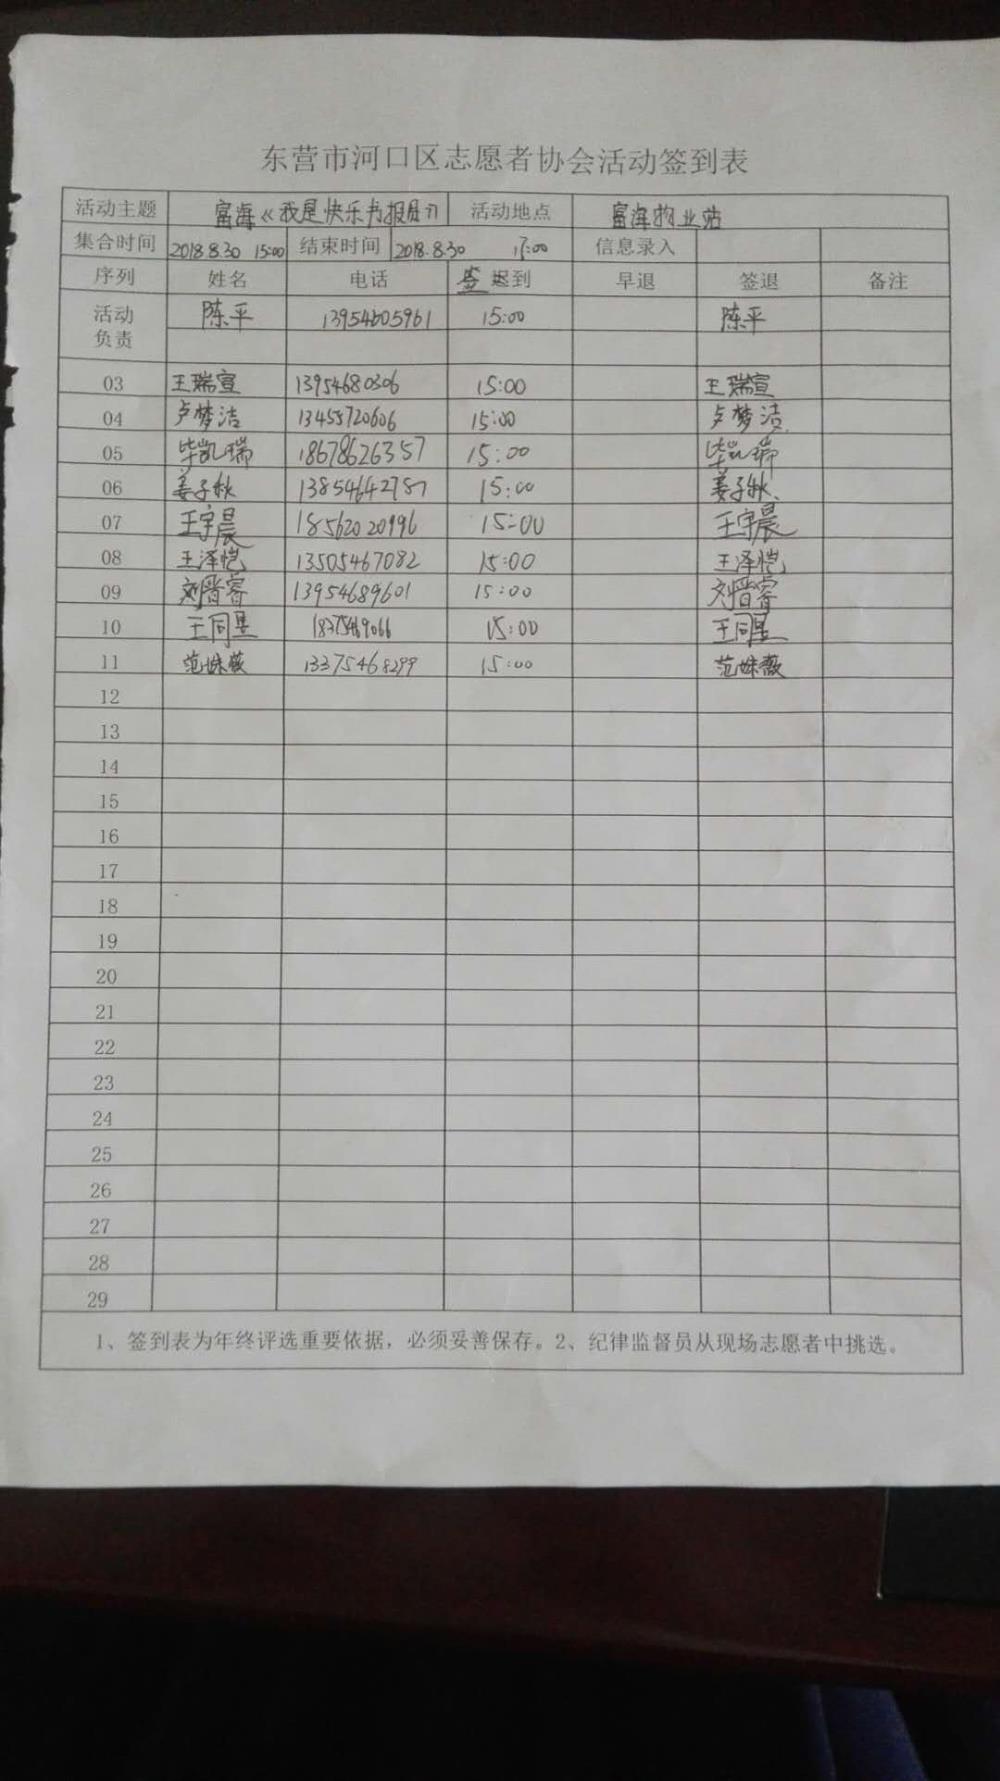 东营市河口区志愿者协会活动签到表
活动主题 富海《我是快乐书报员》 活动地点 富海物业站
集合时间 2018.8.30 15:00 结束时间 2018.8.30 17:00 信息录入
序列 姓名 电话 签到 早退 签退 备注
活动负责 陈平 13954605961 15:00 陈平
03 王瑞宣 13954680306 15:00 王瑞宣
04 卢梦洁 13455720606 15:00 卢梦洁
05 毕凯瑞 18678626357 15:00 毕凯瑞
06 姜子秋 13854642787 15:00 姜子秋
07 王宇晨 18562020996 15:00 王宇晨
08 王泽恺 13505467082 15:00 王泽恺
09 刘晋睿 13954689601 15:00 刘晋睿
10 王同昱 18375469066 15:00 王同昱
11 范姝薇 13375468299 15:00 范姝薇
12
13
14
15
16
17
18
19
20
21
22
23
24
25
26
27
28
29
1、签到表为年终评选重要依据，必须妥善保存。2、纪律监督员从现场志愿者中挑选。